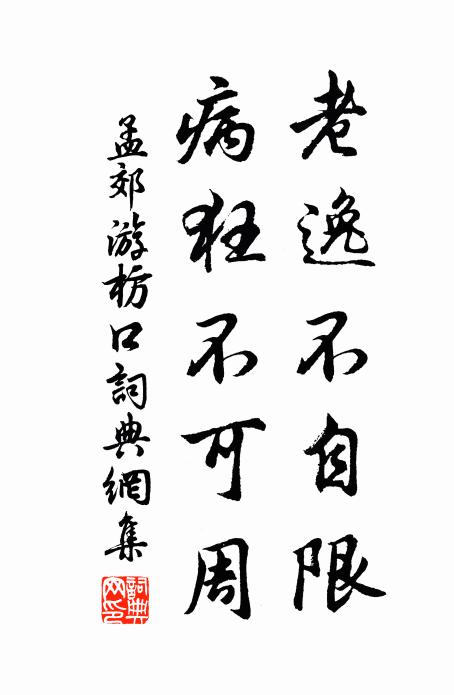 老逸不自限
病狂不可周
孟郊游枋口詞典網集
詞典網印